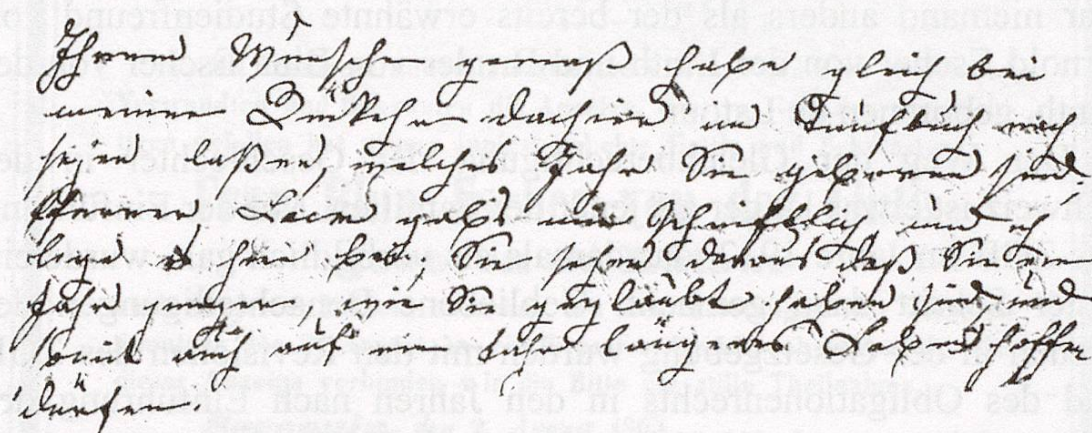 Ihrem Wunsche gemäß habe gleich bey
meiner Rückkehr dahier im Taufbuch nach
sehen laßen, welches Jahr Sie geboren sind
Pfarrer gabs mir Schriftlich und ich
lege es hier bey, Sie sehen daraus daß Sie ein
Jahr jünger wie Sie geglaubt haben sind und
somit auch auf ein Jahr längeres Leben hoffen
dürfen